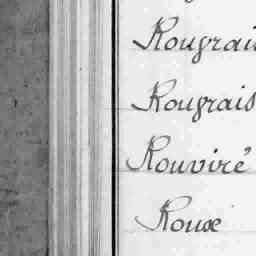 Rougrai
Rougrais
Rouviré
Roux